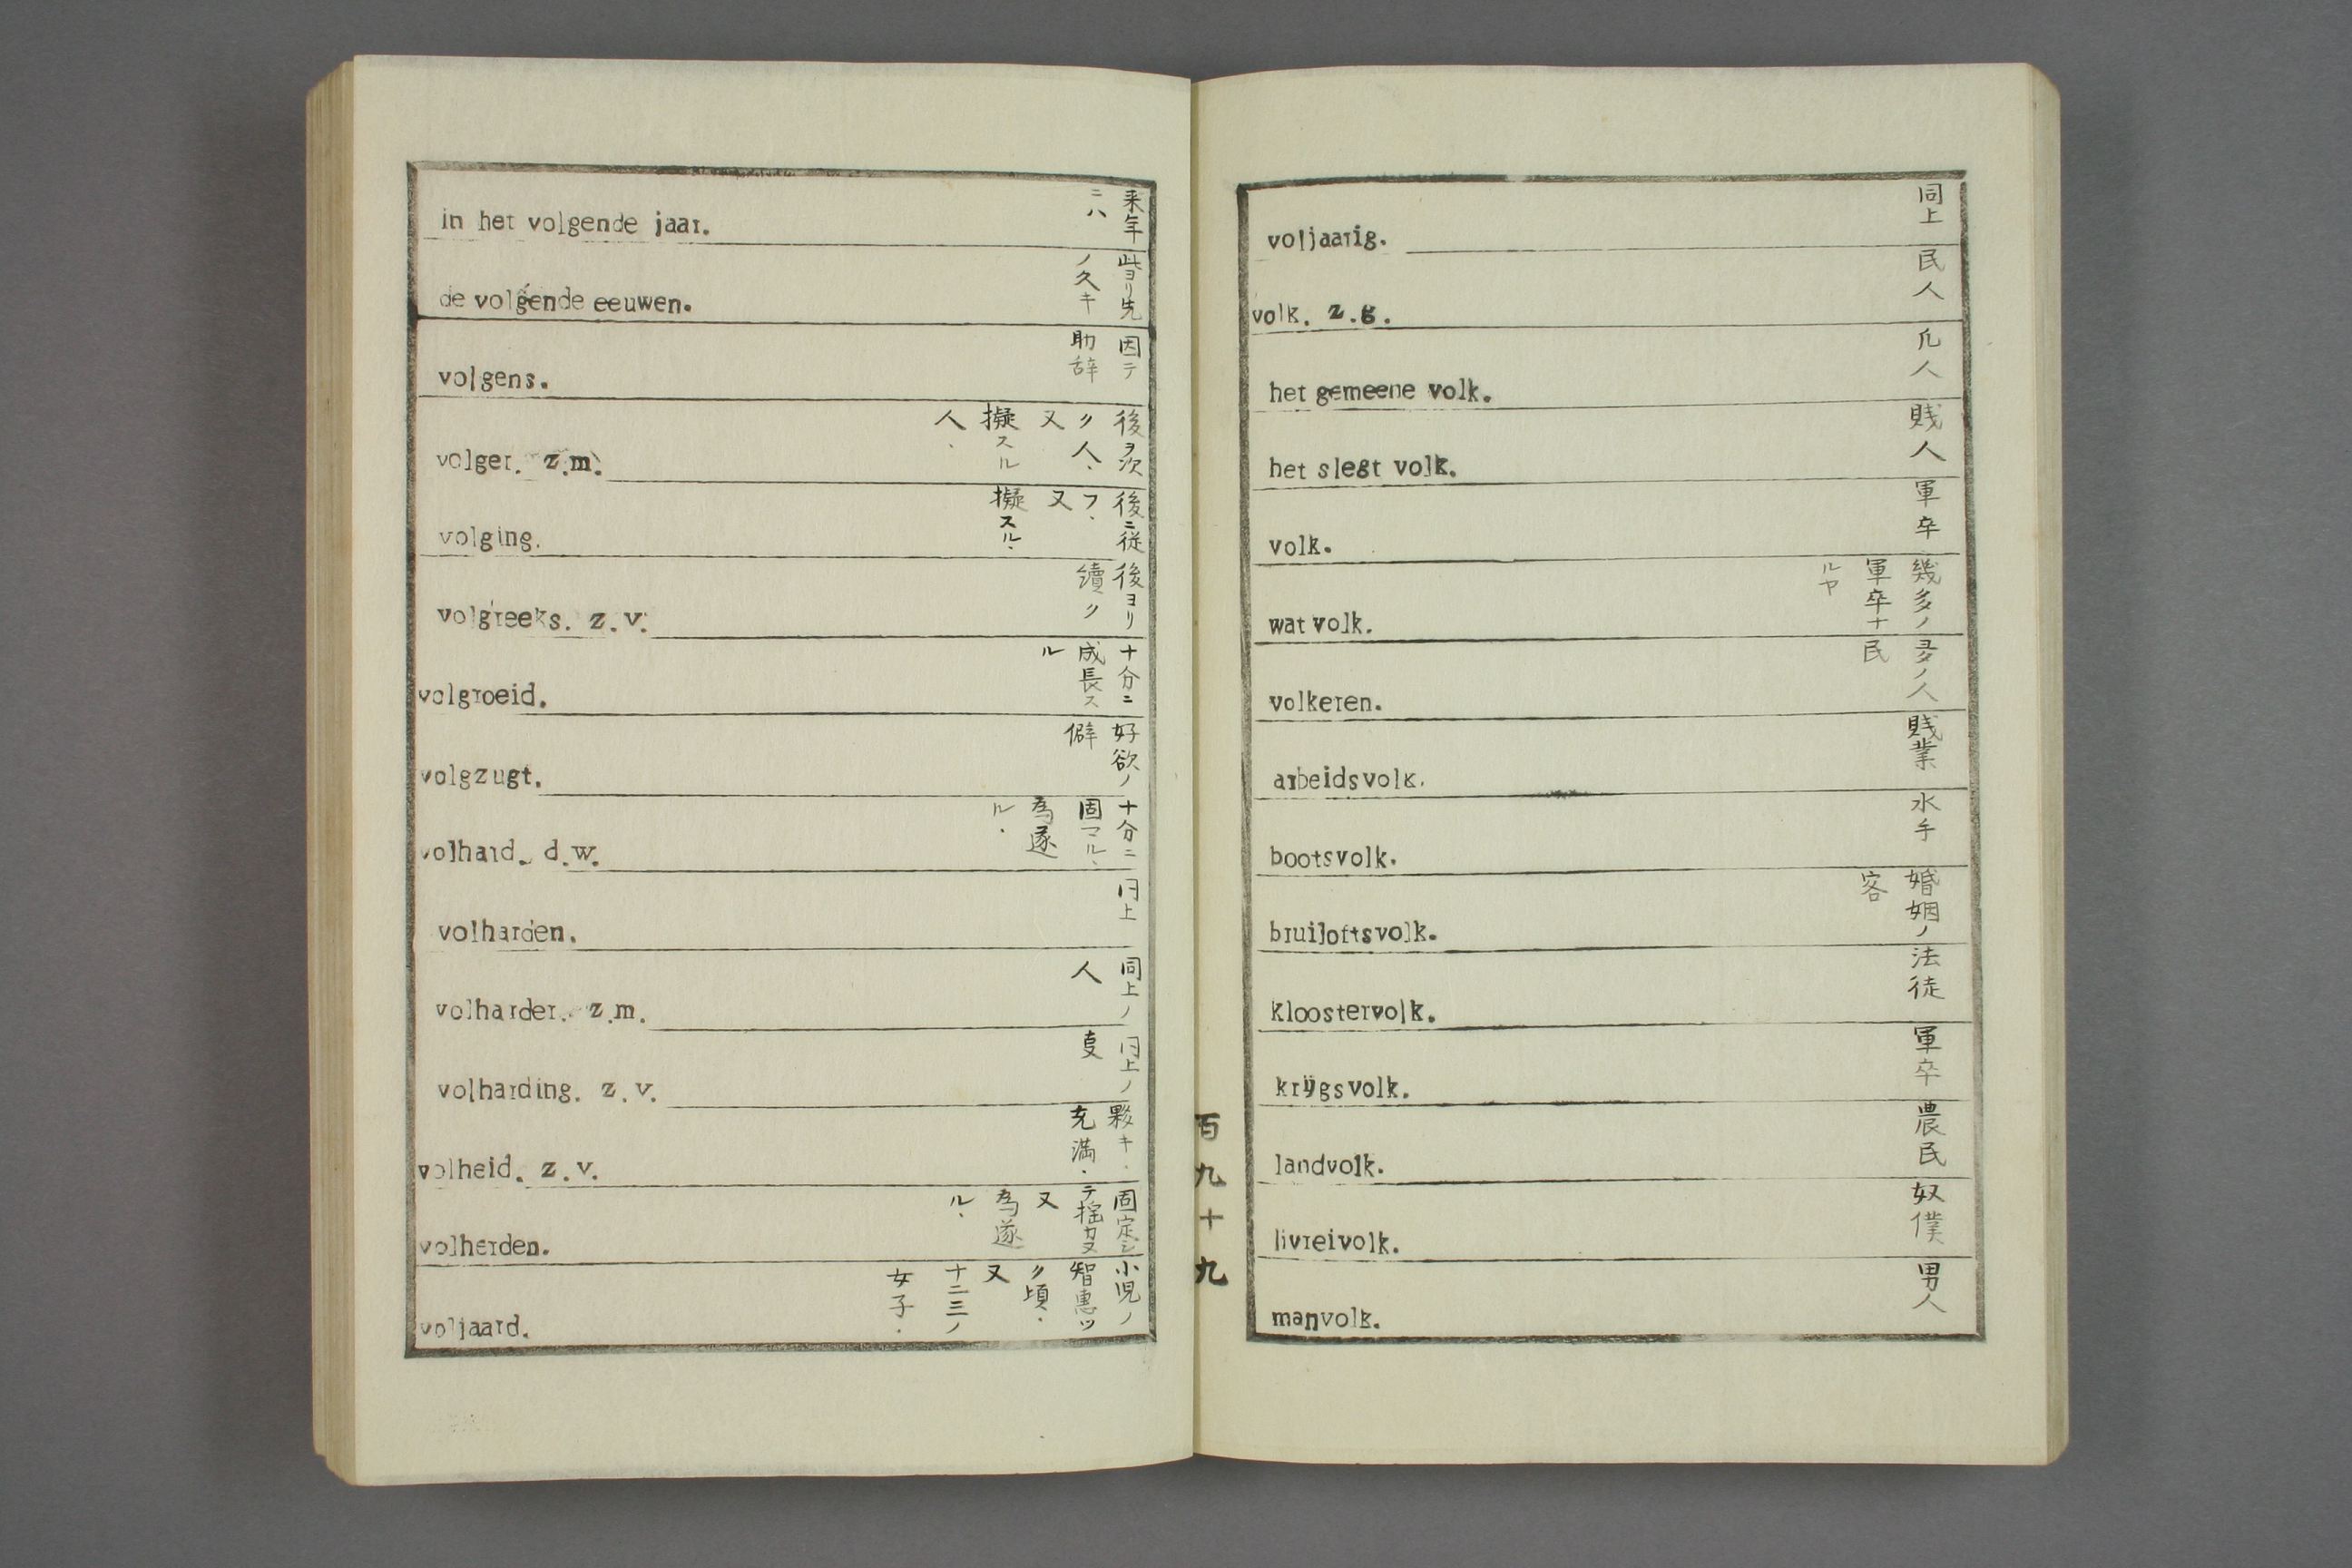 in het volgende jaar.
来年
ニハ
de volgende eeuwen.
此ヨリ先
ノ久キ
volgens.
因テ
助辞
volger. z.m.
後ヲ次
ク人、
又
擬スル
人、
volging.
後ニ従
フ、
又
擬スル、
volgreeks. z.v.
後ヨリ
續ク
volgroeid.
十分ニ
成長ス
ル
volgzugt.
好欲ノ
僻
volhard. d.w.
十分ニ
固マル、
為遂
ル、
volharden.
同上
volharder. z.m.
同上ノ
人
volharding. z.v.
同上ノ
volheid. z.v.
夥キ、
充満、
volherden.
固定シ
テ揺カヌ
又
為遂
ル、
voljaard.
小児ノ
智惠ツ
ク頃、
又
十二三ノ
女子、
百九十九
voljaarig.
同上
volk. z.g.
民人
het gemeene volk.
凡人
het slegt volk.
賎人
volk.
軍卒
wat volk.
幾多ノ
軍卒ナ
ルヤ
volkeren.
多ノ人
民
arbeidsvolk.
賎業
bootsvolk.
水手
bruiloftsvolk.
婚姻ノ
客
kloostervolk.
法徒
krÿgsvolk.
軍卒
landvolk.
農民
livreivolk.
奴僕
manvolk.
男人